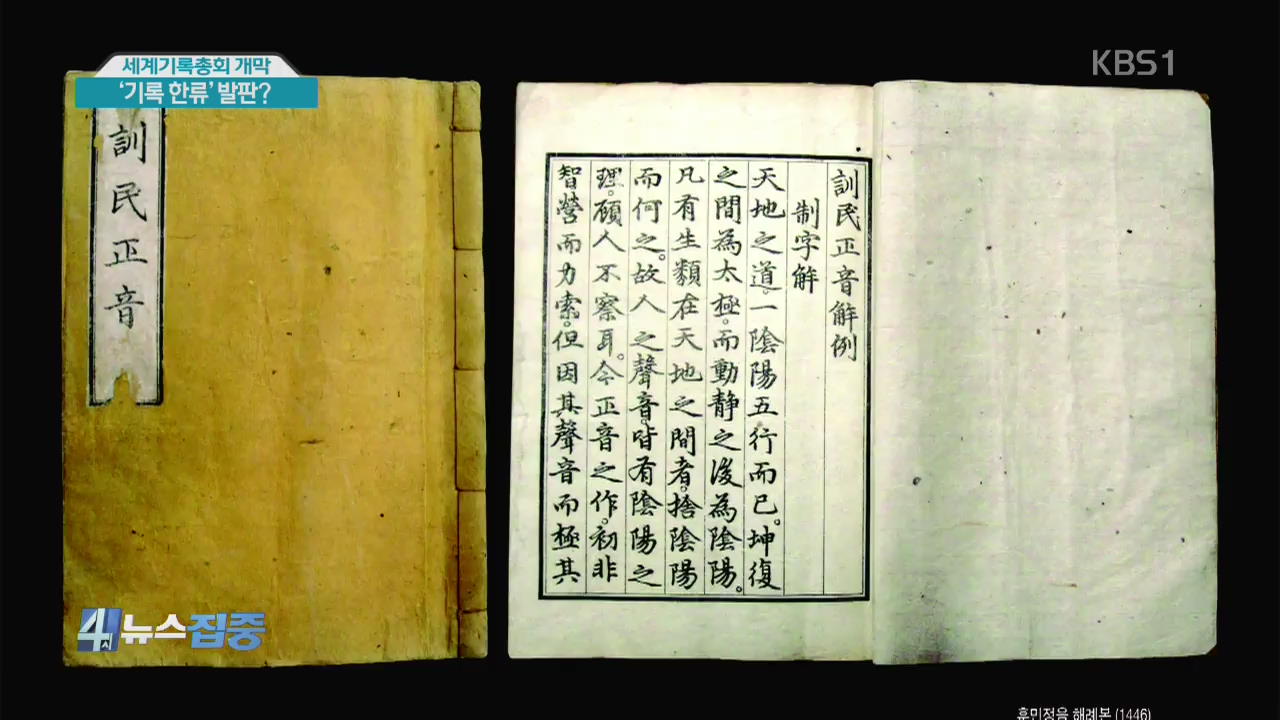 세계기록총회 개막
‘기록 한류’ 발판?
KBS1
訓民正音
訓民正音解例
制字解
天地之道。一陰陽五行而已。坤復
之間為太極。而動静之後為陰陽。
凡有生類在天地之間者。捨陰陽
而何之。故人之聲音。皆有陰陽之
理。顧人不察耳。今正音之作。初非
智營而力索。但因其聲音而極其
4시 뉴스집중
훈민정음 해례본 (1446)